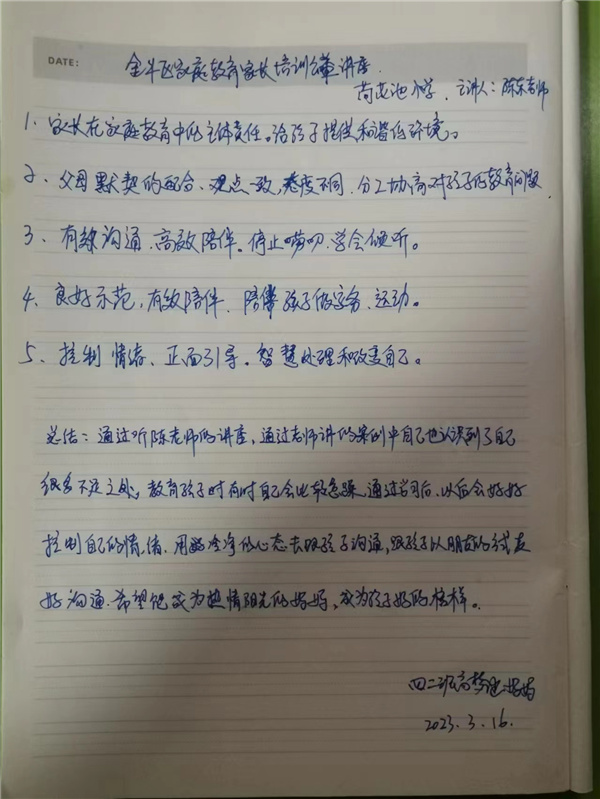 DATE:
金斗区家庭教育家长培训 讲座
苟 池小学、主讲人：陈东老师
1、家长在家庭教育中的主体责任。给孩子提供和谐的环境。
2、父母默契的配合、观点一致，态度不同、分工协商对孩子的教育问题
3、有效沟通、高效陪伴。停止唠叨、学会倾听。
4、良好示范，有效陪伴、陪伴孩子做家务、运动。
5、控制情绪、正面引导。智慧处理和改变自己。
总结：通过听陈老师的讲座，通过老师讲的案例中自己也认识到了自己
很多不足之处，教育孩子时有时自己会比较急躁，通过学习后，以后会好好
控制自己的情绪、用 冷静的心态去跟孩子沟通，跟孩子以朋友的方式友
好沟通、希望能成为热情阳光的妈妈，成为孩子好的榜样。
四二班高梦 妈妈
2023.3.16.